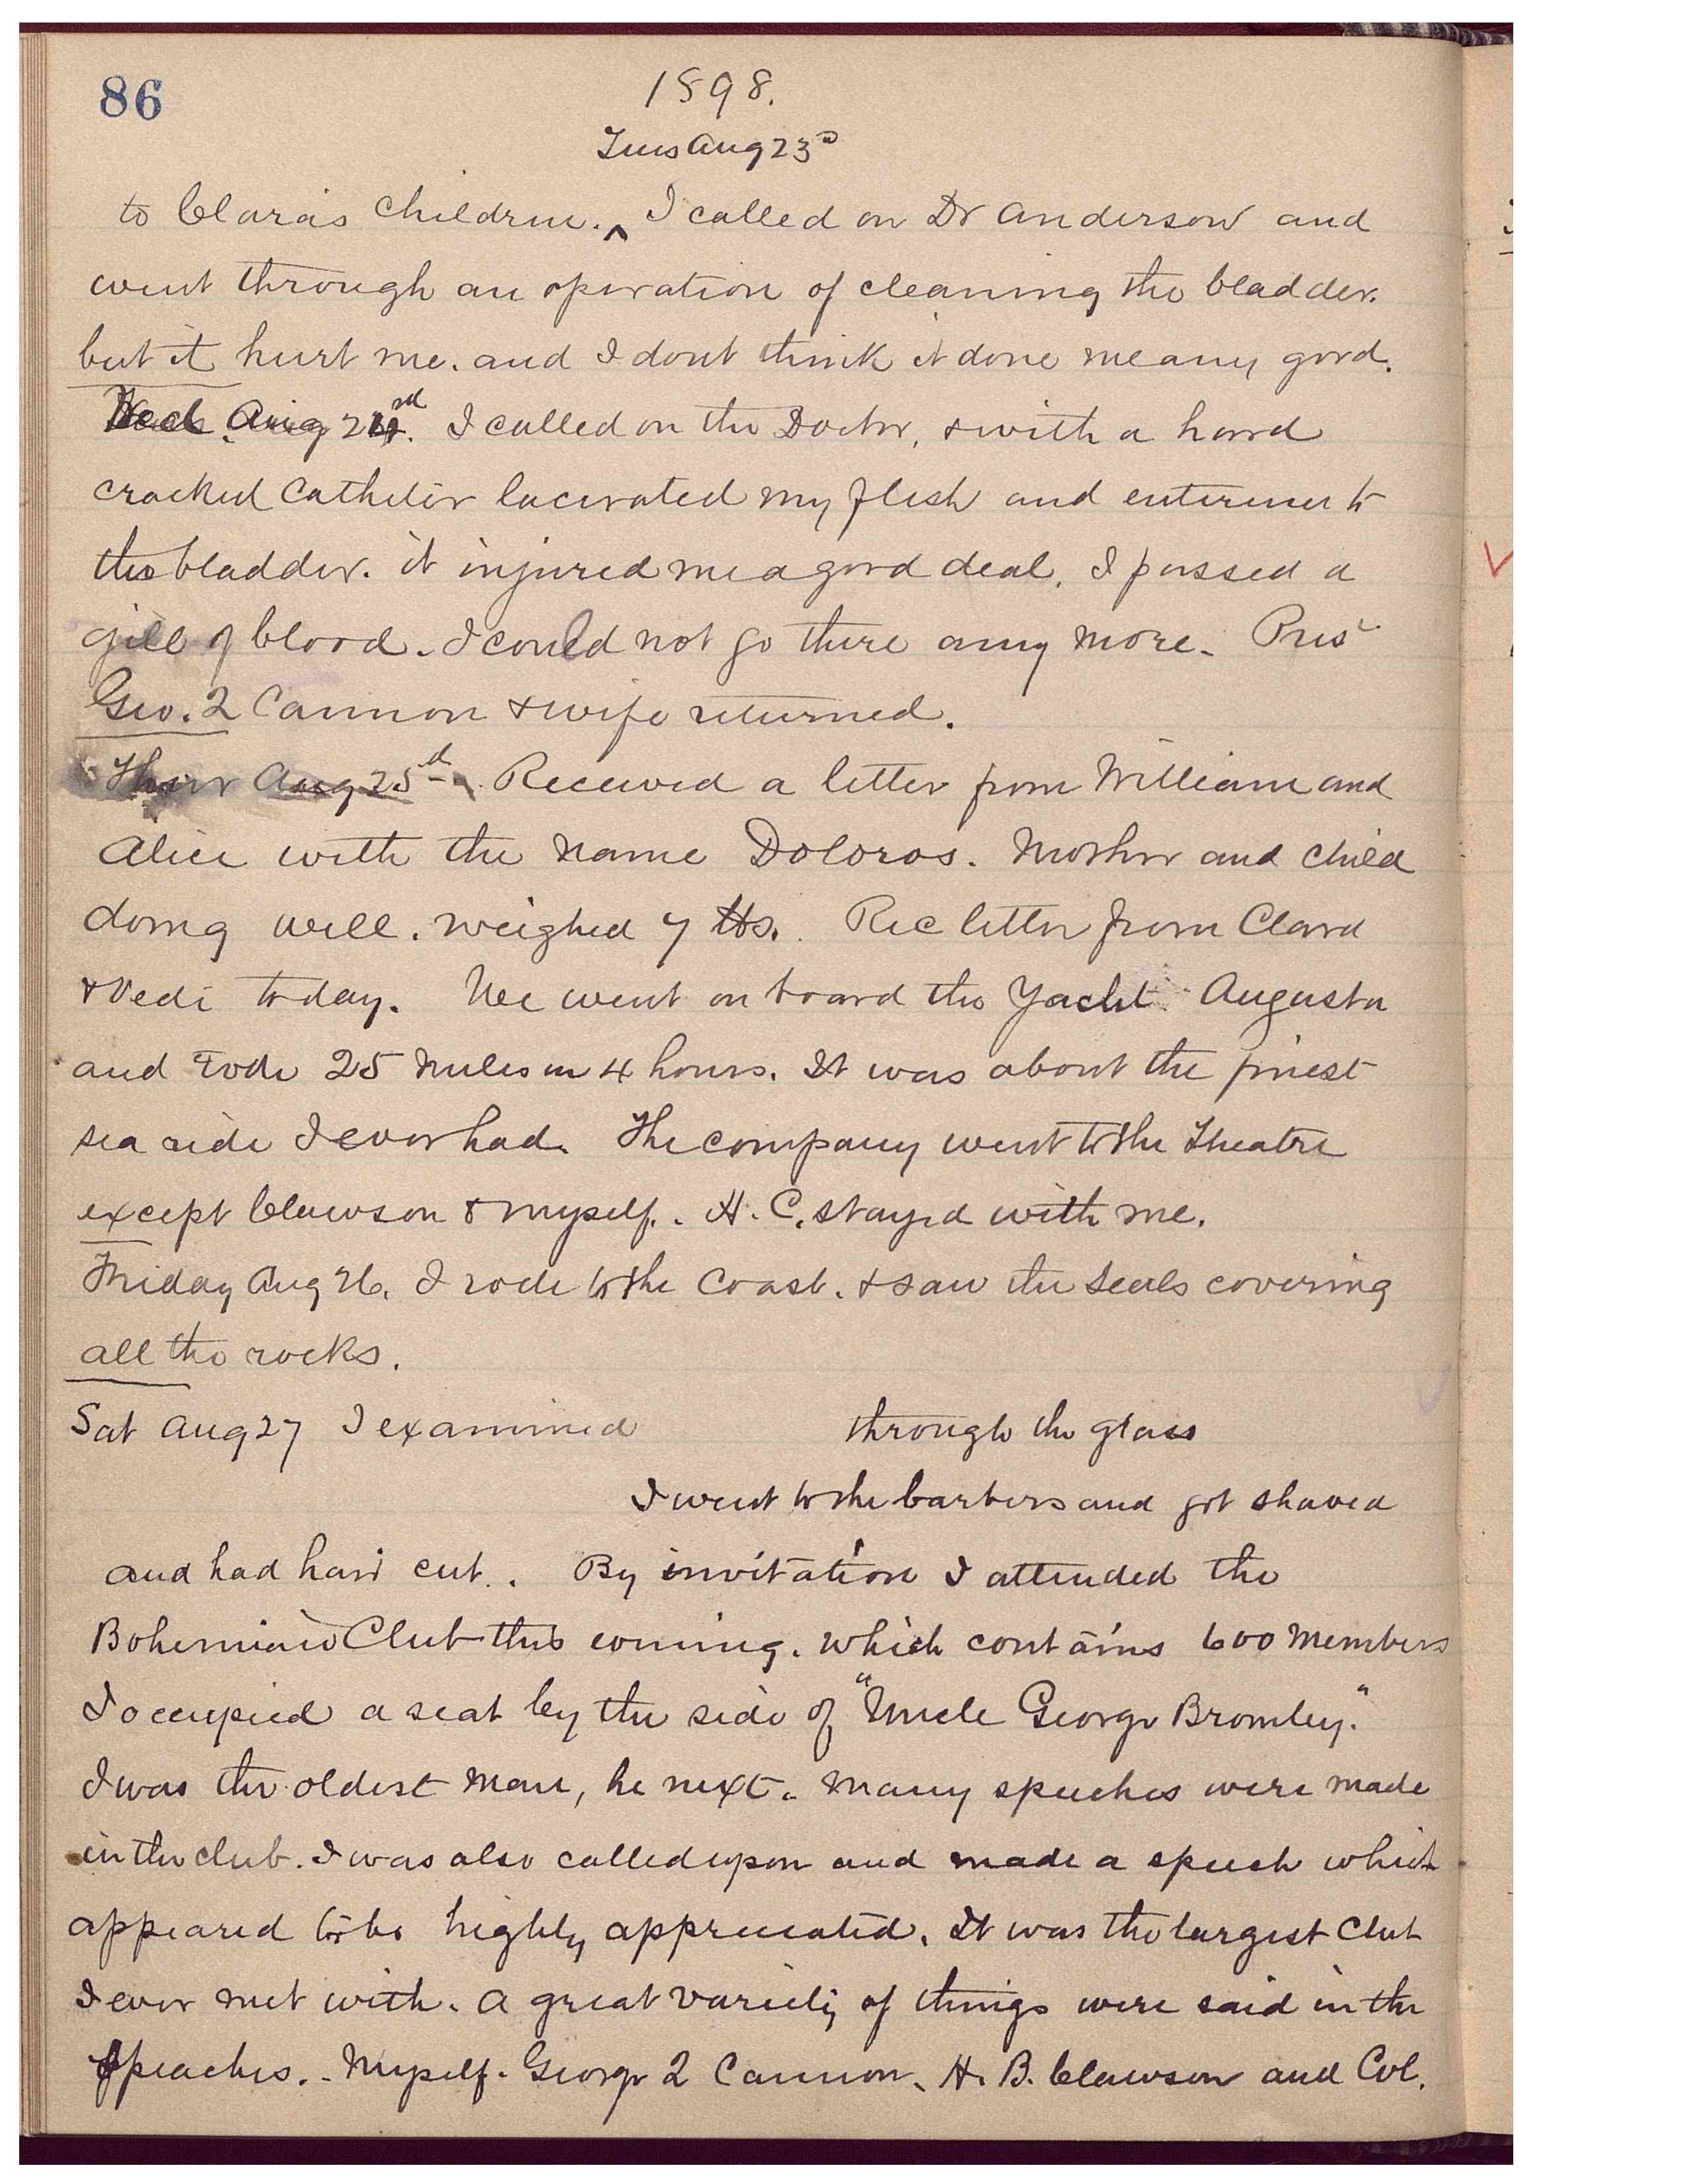 86
1898.
Tues Aug 23d
to Clara's Children. ^ I called on Dr Anderson and
went through an operation of cleaning the bladder.
but it hurt me. and I dont think it done me any good.
Wed. Aug 24. I called on the Doctor, & with a hard
cracked Catheter lacerated my flesh and to
the bladder. it injured me a good deal. I passed a
gill of blood. I could not go there any more. Pres
Geo. Q Cannon & wife returned.
Thur Aug 25th. Received a letter from William and
Alice with the name Doloros. Mother and Child
doing well. weighed 7 lbs. Rec letter from Clara
& Ovedi today. We went on board the Yacht Augusta
and rode 25 Miles in 4 hours. It was about the finest
sea ride I ever had. The company went to the Theatre
except Clawson & myself. H. C. stayed with me.
Friday Aug 26. I rode to the Coast. & saw the Seals covering
all the rocks.
Sat Aug 27 I examined through the glass
I went to the barbers and got shaved
and had hair cut. . By invitation I attended the
Bohemian Club this evening. which contains 600 Members
I occupied a seat by the side of "Uncle George Bromley."
I was the oldest man, he next. Many speeches were made
in the club. I was also called upon and made a speech which
appeared to be highly appreciated. It was the largest Club
I ever met with. A great variety of things were said in the
Speaches. - Myself. George Q Cannon, H. B. Clawson and Col.